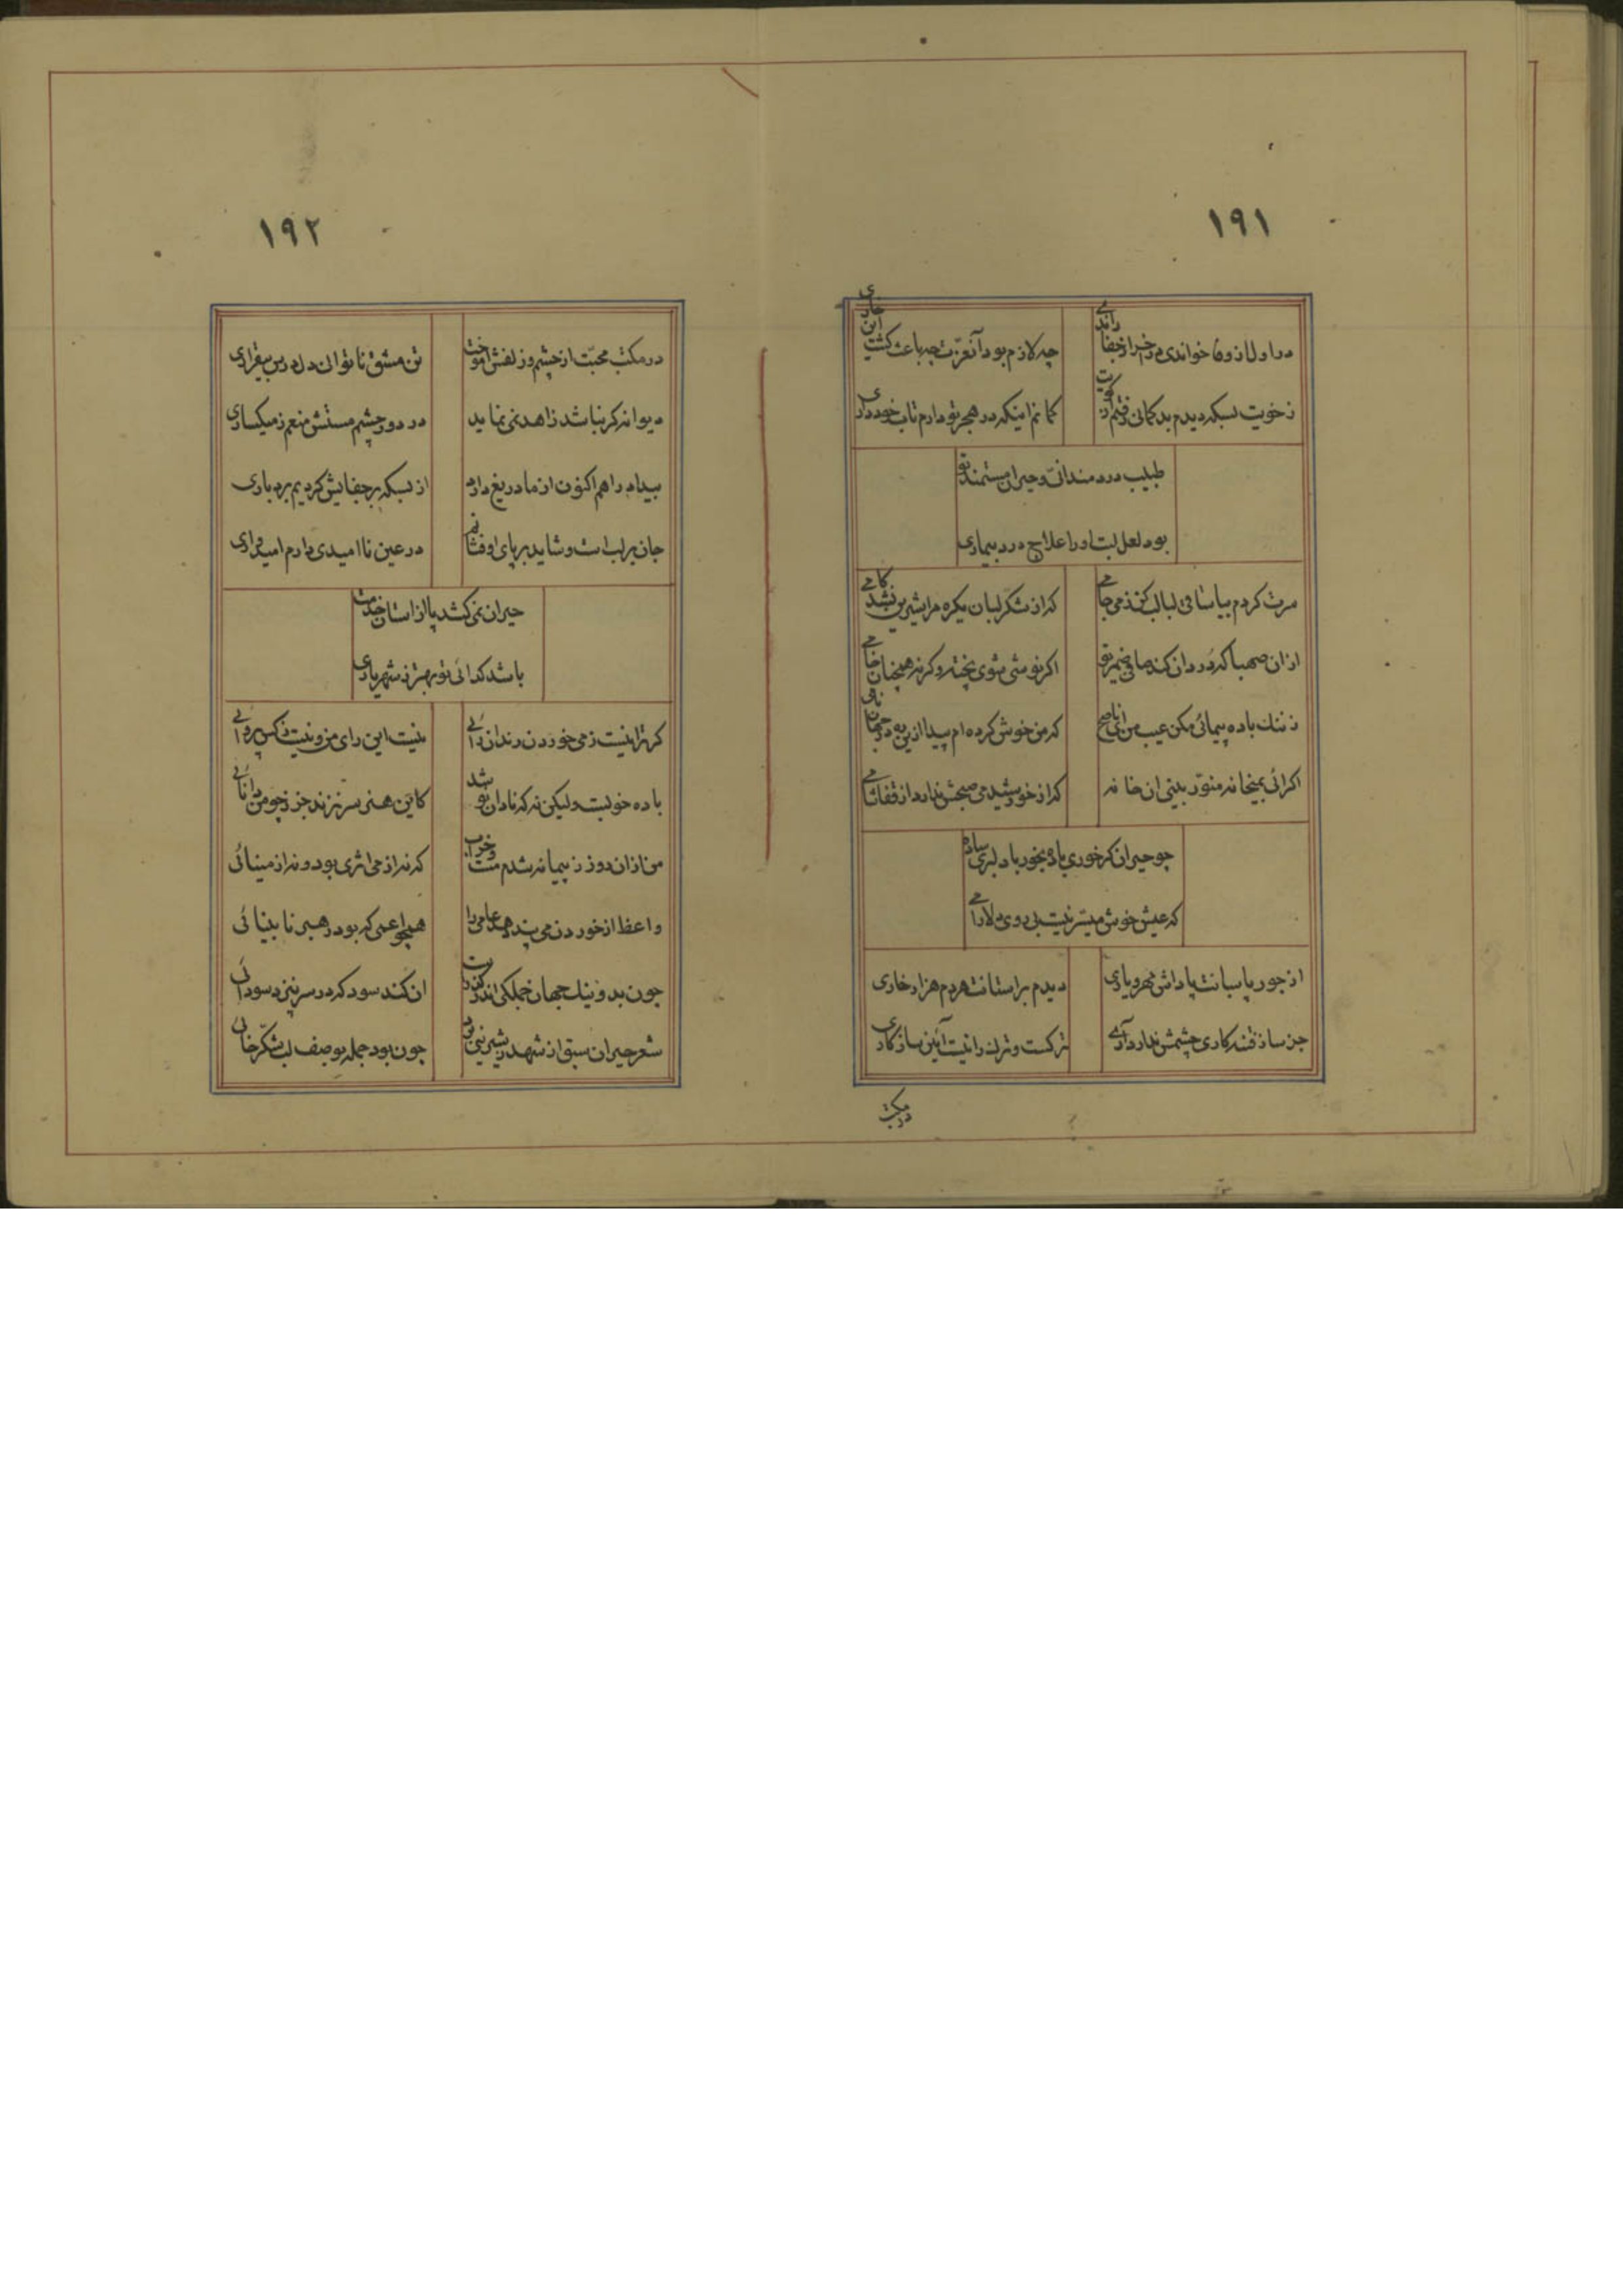 ۱۹۱
در اول از وفا خواندی در آخر از جفا راندی
چه لازم بود آن عزت چه باعث گشت این خاری
ز خویت بسکه دیدم بدکمانی رفتم از کویت
کمانم اینکه در هجر تو دارم تاب خودداری
طبیب دردمندانی و حیران مستمند تو
بود لعل لبت او را علاج درد بیماری
سرت کردم بیا ساقی لبالب کن ز می جامی
که از شکر لبان یکره مرا شیرین نشد کامی
از ان صهبا که دردان کند صافی ضمیر تو
اکر نوشی شوی پخته وکرنه همچنان خامی
ز ننک باده پیمائی مکن عیب من ای ناصح
که من خوش کرده ام پیدا ازین ره در جهان نامی
اکر ائی بمیخانه منور بینی ان خانه
که از خورشید می صبحش ندارد از قفا شامی
چو حیران کر خوری باده بخور با دلبری ساده
که عیش خوش میسر نیست بی روی دلارامی
از جور پاسبانت پاداش مهر و یاری
دیدم بر استانت هر دم هزار خاری
جز ساز فتنه کاری چشمش ندارد آری
ترکست و ترک را نیست آئین سازکاری
در مکتب
۱۹۲
در مکتب محبت از چشم و زلفش اموخت
تن مشق ناتوانی دل درس بیقراری
دیوانه کر نباشد زاهد نمی نماید
در دور چشم مستش منعم ز میکساری
بیداد را هم اکنون از ما دریغ دارد
از بسکه بر جفایش کردیم بردباری
جان بر لب است و شاید بر پای او فشانم
در عین ناامیدی دارم امیدواری
حیران نمی کشد پا از استان خدمت
باشد کدائی تو بهتر ز شهریاری
کر ترا نیست ز می خوردن رندان رائی
نیست این رای من و نیست ز کس پروائی
باده خوبست ولیکن نه که نادان نوشد
کاین هنر سر نزند جز ز چو من دانائی
من از ان روز ز پیمانه شدم مست و خراب
که نه از می اثری بود و نه از مینائی
واعظ از خوردن می پند دهد عامی را
همچو اعمی که بود رهبر نابینائی
چون بد و نیک جهان جملکی اندر کذرست
ان کند سود که در سر نپزد سودائی
شعر حیران سبق از شهد ز شیرینی برد
چون بود جمله بوصف لب شکرخائی